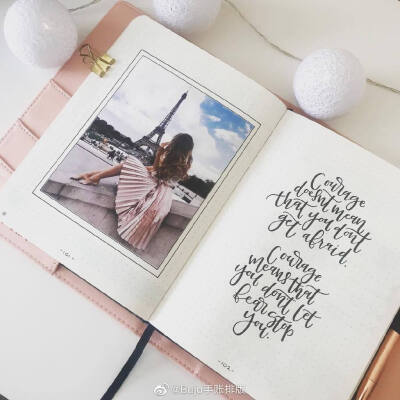 Courage
doesn't mean
that you don't
get afraid.
Courage
means that
you don't let
fear stop
you.
-101-
-102-
@Bujo手账排版